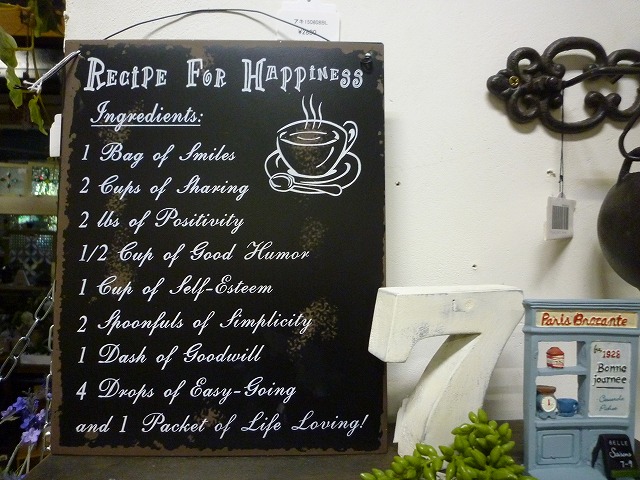 RECIPE FOR HAPPINESS
Ingredients:
1 Bag of Smiles
2 Cups of Sharing
2 lbs of Positivity
1/2 Cup of Good Humor
1 Cup of Self-Esteem
2 Spoonfuls of Simplicity
1 Dash of Goodwill
4 Drops of Easy-Going
and 1 Packet of Life Loving!
7
Paris Brocante
1928
Bonne
journée
BELLE
Saisons
7-9